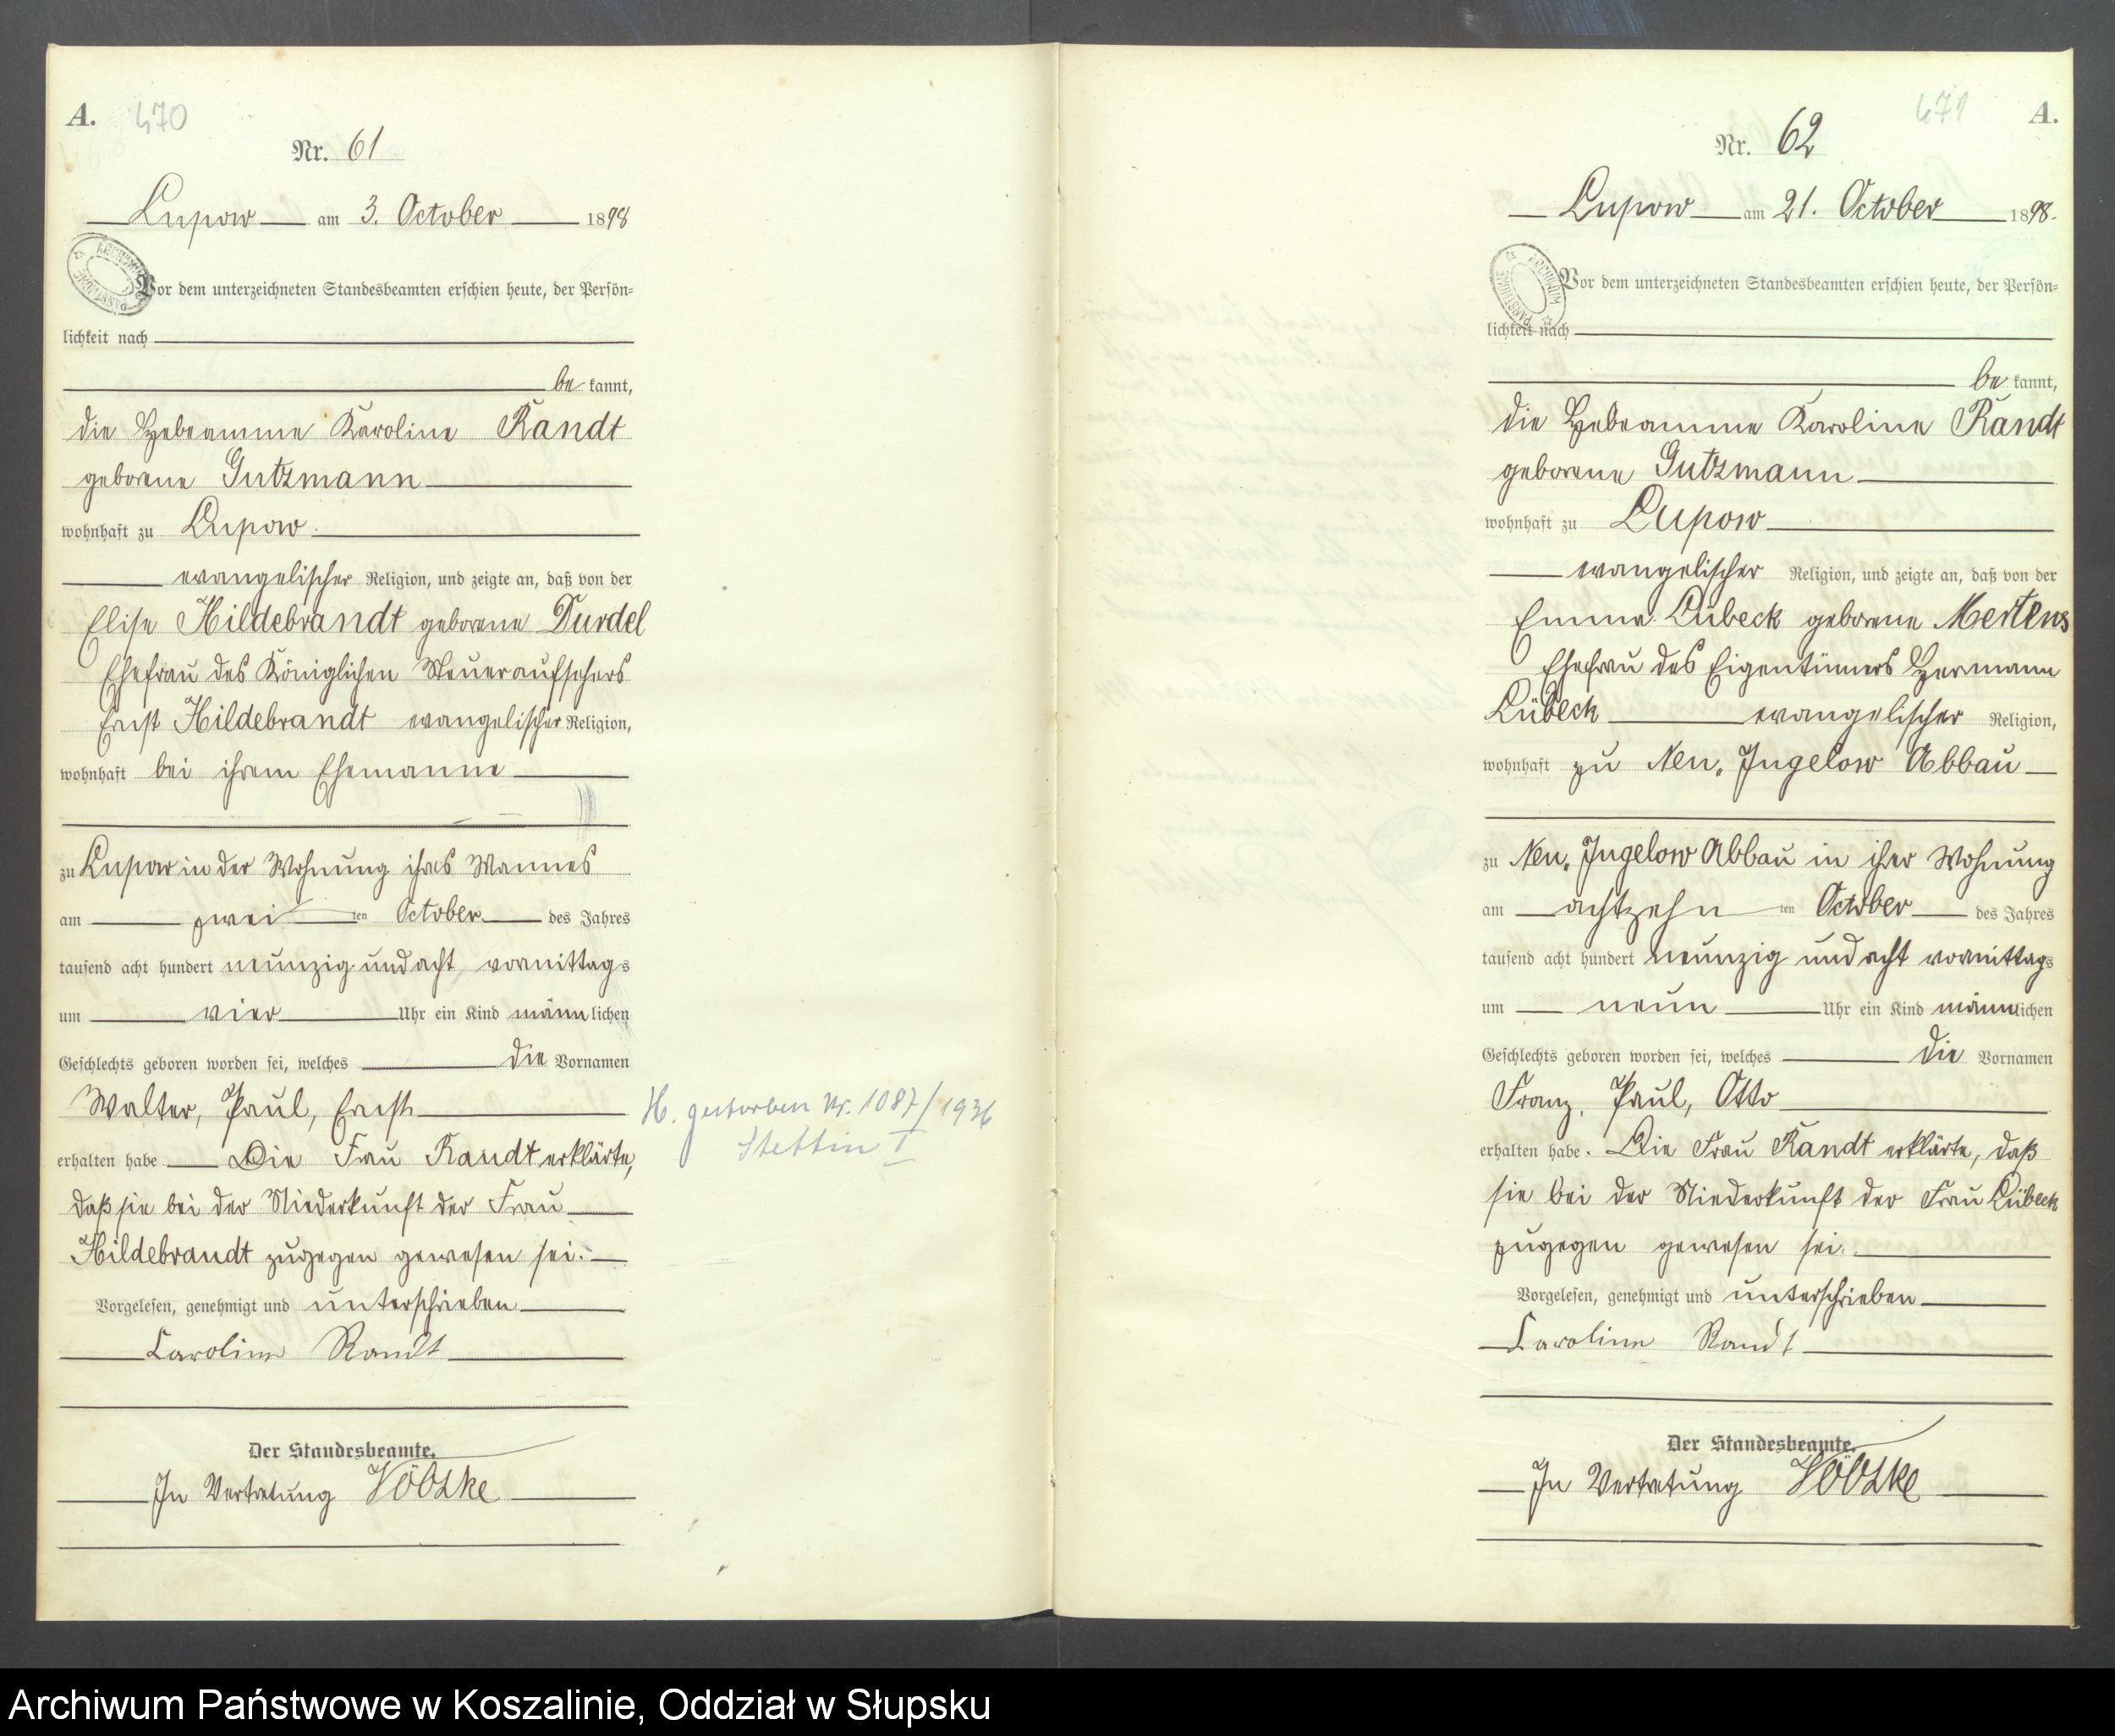 A. 470
Nr. 61
Lupow am 3. October 1898
Vor dem unterzeichneten Standesbeamten erschien heute, der Persön=
lichkeit nach
be kannt,
die Hebeamme Karoline Randt
geborene Gutzmann
wohnhaft zu Lupow.
evangelischer Religion, und zeigte an, daß von der
Elise Hildebrandt geborene Durdel
Ehefrau des Königlichen Steueraufsehers
Ernst Hildebrandt evangelischer Religion,
wohnhaft bei ihrem Ehemanne
zu Lupow in der Wohnung ihres Mannes
am zwei ten October des Jahres
tausend acht hundert neunzig und acht vormittags
um vier Uhr ein Kind männlichen
Geschlechts geboren worden sei, welches die Vornamen
Walter, Paul, Ernst
erhalten habe Die Frau Randt erklärte,
daß sie bei der Niederkunft der Frau
Hildebrandt zugegen gewesen sei.
Vorgelesen, genehmigt und unterschrieben
Caroline Randt
Der Standesbeamte.
In Vertretung
H. gestorben Nr. 1087/1936
Stettin I
471 A.
Nr. 62
Lupow am 21. October 1898.
Vor dem unterzeichneten Standesbeamten erschien heute, der Persön=
lichkeit nach
be kannt,
die Hebeamme Karoline Randt
geborene Gutzmann
wohnhaft zu Lupow
evangelischer Religion, und zeigte an, daß von der
Emma Lübeck geborene Mertens
Ehefrau des Eigentümers Hermann
Lübeck evangelischer Religion,
wohnhaft zu Neu, Jugelow Abbau
zu Neu, Jugelow Abbau in ihrer Wohnung
am achtzehn ten October des Jahres
tausend acht hundert neunzig und acht vormittags
um neun Uhr ein Kind männlichen
Geschlechts geboren worden sei, welches die Vornamen
Franz, Paul, Otto
erhalten habe. Die Frau Randt erklärte, daß
sie bei der Niederkunft der Frau Lübeck
zugegen gewesen sei.
Vorgelesen, genehmigt und unterschrieben
Caroline Randt
Der Standesbeamte.
In Vertretung
Archiwum Państwowe w Koszalinie, Oddział w Słupsku